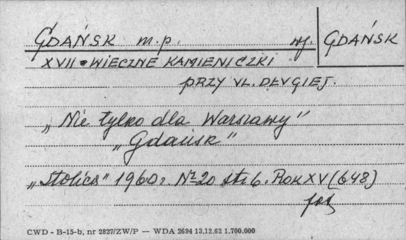 GDAŃSK m.p. wj. GDAŃSK
XVII-WIECZNE KAMIENICZKI
PRZY UL. DŁUGIEJ.
„Nie tylko dla Warszawy"
„Gdańsk"
„Stolica" 1960 r. Nr 20 str. 6. Rok XV (648)
fot
CWD - B-15-b, nr 2827/ZW/P — WDA 2694 13.12.62 1.700.000